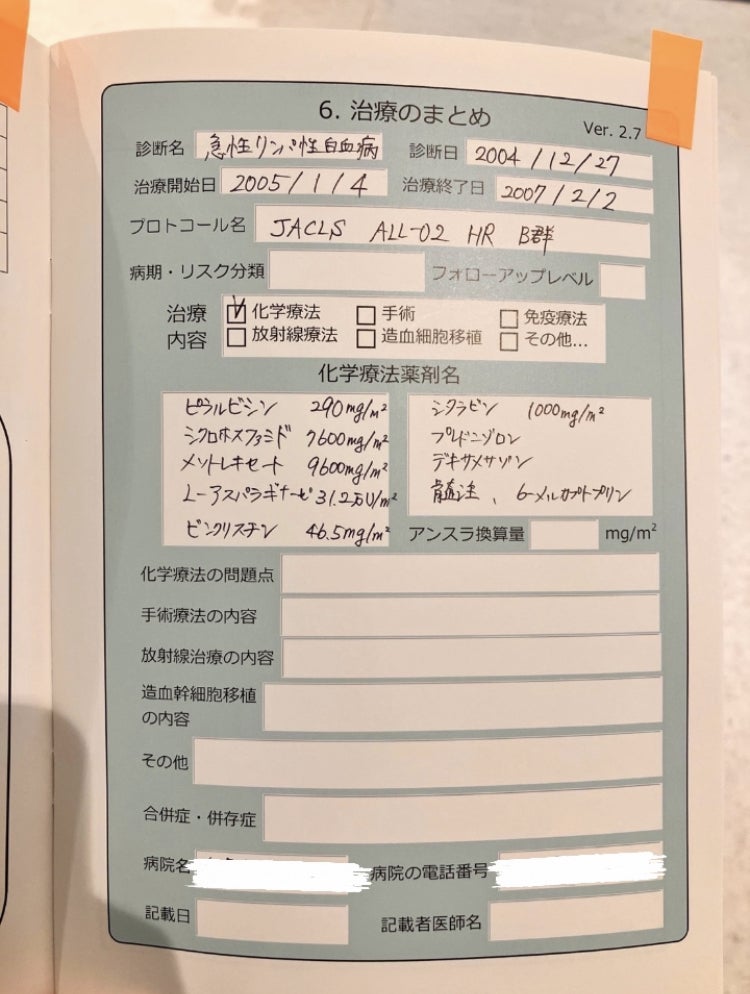 6. 治療のまとめ
Ver. 2.7
診断名 急性リンパ性白血病 診断日 2004/12/27
治療開始日 2005/1/4 治療終了日 2007/2/2
プロトコール名 JACLS ALL-02 HR B群
病期・リスク分類 フォローアップレベル
治療内容
☑ 化学療法 □ 手術 □ 免疫療法
□ 放射線療法 □ 造血細胞移植 □ その他...
化学療法薬剤名
ピラルビシン 290mg/m² シタラビン 1000mg/m²
シクロホスファミド 7600mg/m² プレドニゾロン
メソトレキセート 9600mg/m² デキサメサゾン
L-アスパラギナーゼ 31.2万U/m² 髄注、6-メルカプトプリン
ビンクリスチン 46.5mg/m² アンスラ換算量 mg/m²
化学療法の問題点
手術療法の内容
放射線治療の内容
造血幹細胞移植
の内容
その他
合併症・併存症
病院名 病院の電話番号
記載日 記載者医師名